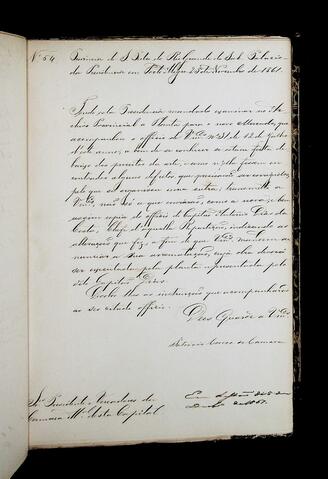 N.º 54 Provincia de S. Pedro do Rio Grande do Sul. Palacio
da Presidencia em Porto Alegre 23 de Novembro de 1861.
Tendo esta Presidencia mandado examinar no Ar
chivo Provincial a Planta para o novo Matadouro, que
acompanhou o officio de V.mces N.º 31 de 12 de Julho
d'este anno, a fim de se conhecer se estava feita de
baixo dos preceitos da arte, e como n'ella fossem en
contrados alguns defeitos que precisavão ser corrigidos,
pelo que se organisou uma outra, transmitto a
V.mces, não só a que enviarão, como a nova, e bem
assim copia do officio do Capitão Antonio Dias da
Costa, Chefe d'aquella Repartição, indicando as
alterações que fez, a fim de que V.mces mandem an
nunciar a sua arrematação, cuja obra deverá
ser executada pela planta apresentada pelo
dito Capitão Dias.
Devolvo-lhes as instrucções que acompanharão
ao seu citado officio.
Deos Guarde a V.mces
Antonio Correa da Camara
Snr.s Presidente e Vereadores da
Camara M.al desta Capital